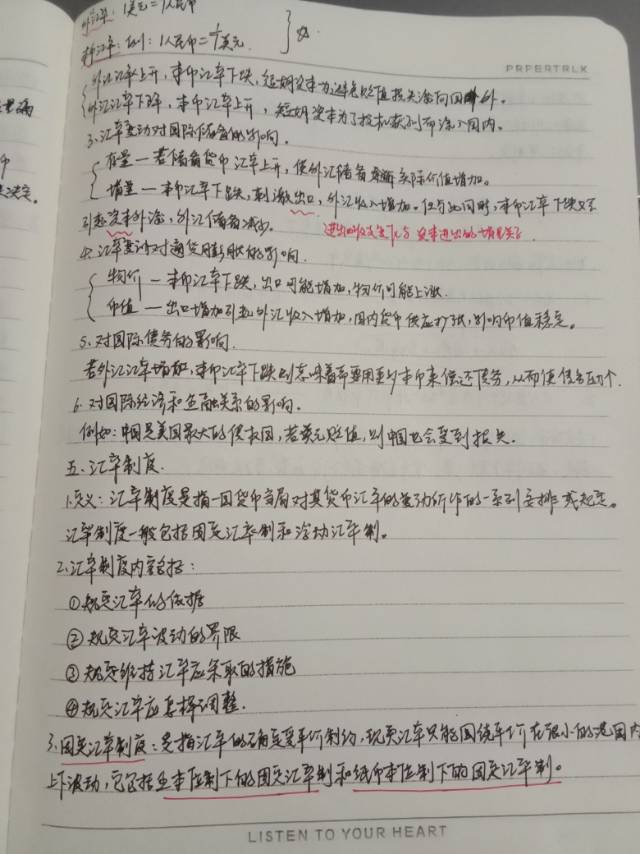 外汇率：1美元=1人民币
本汇率：例：1人民币=1/美元
PRPERTRLK
外汇汇率上升，本币汇率下跌，短期资本为避免贬值损失流向国外。
外汇汇率下降，本币汇率上升，短期资本为了投机获利而流入国内。
3.汇率变动对国际储备的影响.
存量—若储备货币汇率上升，使外汇储备实际价值增加。
增量—本币汇率下跌，刺激出口，外汇收入增加。但与此同时，本币汇率下跌又会
引起资本外流，外汇储备减少。
4.汇率变动对通货膨胀的影响.
物价—本币汇率下跌，出口可能增加，物价可能上涨.
币值—出口增加引起外汇收入增加，国内货币供应扩张，影响币值稳定。
5.对国际债务的影响.
若外汇汇率增加，本币汇率下跌则意味着要用更多本币来偿还债务，从而使债务
6.对国际经济和金融关系的影响.
例如：中国是美国最大的债权国，若美元贬值，则中国也会受到损失.
五.汇率制度.
1.定义：汇率制度是指一国货币当局对其货币汇率的变动所作的一系列安排或规定。
汇率制度一般包括固定汇率制和浮动汇率制。
2.汇率制度内容包括：
①规定汇率的依据
②规定汇率波动的界限
③规定维持汇率应采取的措施
④规定汇率应怎样调整.
3.固定汇率制度：是指汇率的确定受平价制约，现实汇率只能围绕平价在很小的范围内
上下波动，它包括金本位制下的固定汇率制和纸币本位制下的固定汇率制。
LISTEN TO YOUR HEART